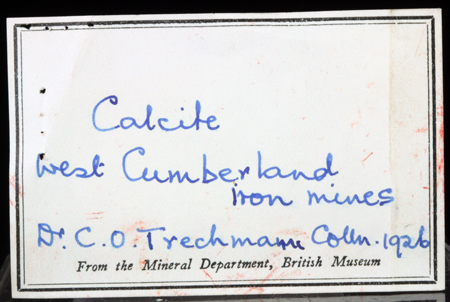 Calcite
West Cumberland
iron mines
Dr. C. O. Trechmann Colln. 1926
From the Mineral Department, British Museum